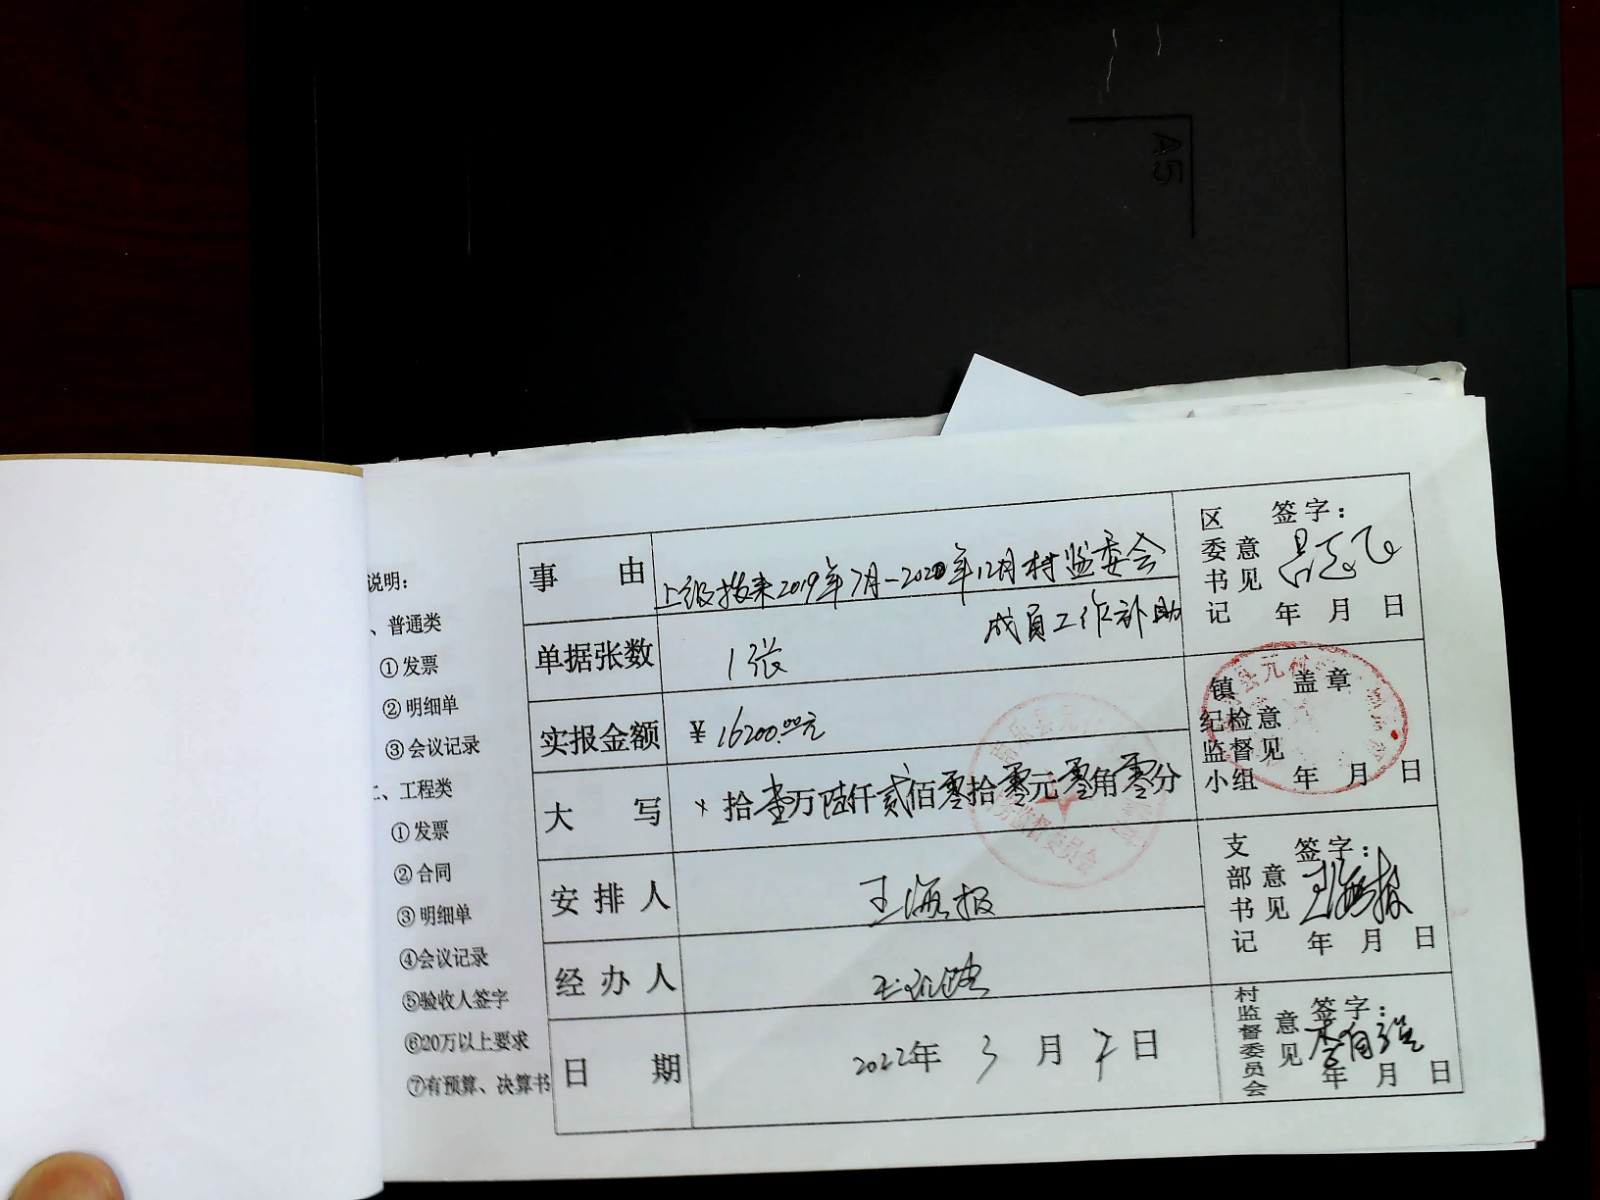 A5
说明:
、普通类
①发票
②明细单
③会议记录
二、工程类
①发票
②合同
③明细单
④会议记录
⑤验收人签字
⑥20万以上要求
⑦有预算、决算书
事由 上级拨来2019年7月-2020年12月村监委会
成员工作补助
单据张数 1张
实报金额 ¥16200.00元
大写 × 拾壹万陆仟贰佰零拾零元零角零分
安排人 王海报
经办人
日期 2022年3月 日
区委书记意见 签字:
年 月 日
镇纪检监督小组意见 盖章
年 月 日
支部书记意见 签字: 王海报
年 月 日
村监督委员会意见 签字: 李有
年 月 日
乐县元村
务监督委员会
县元村